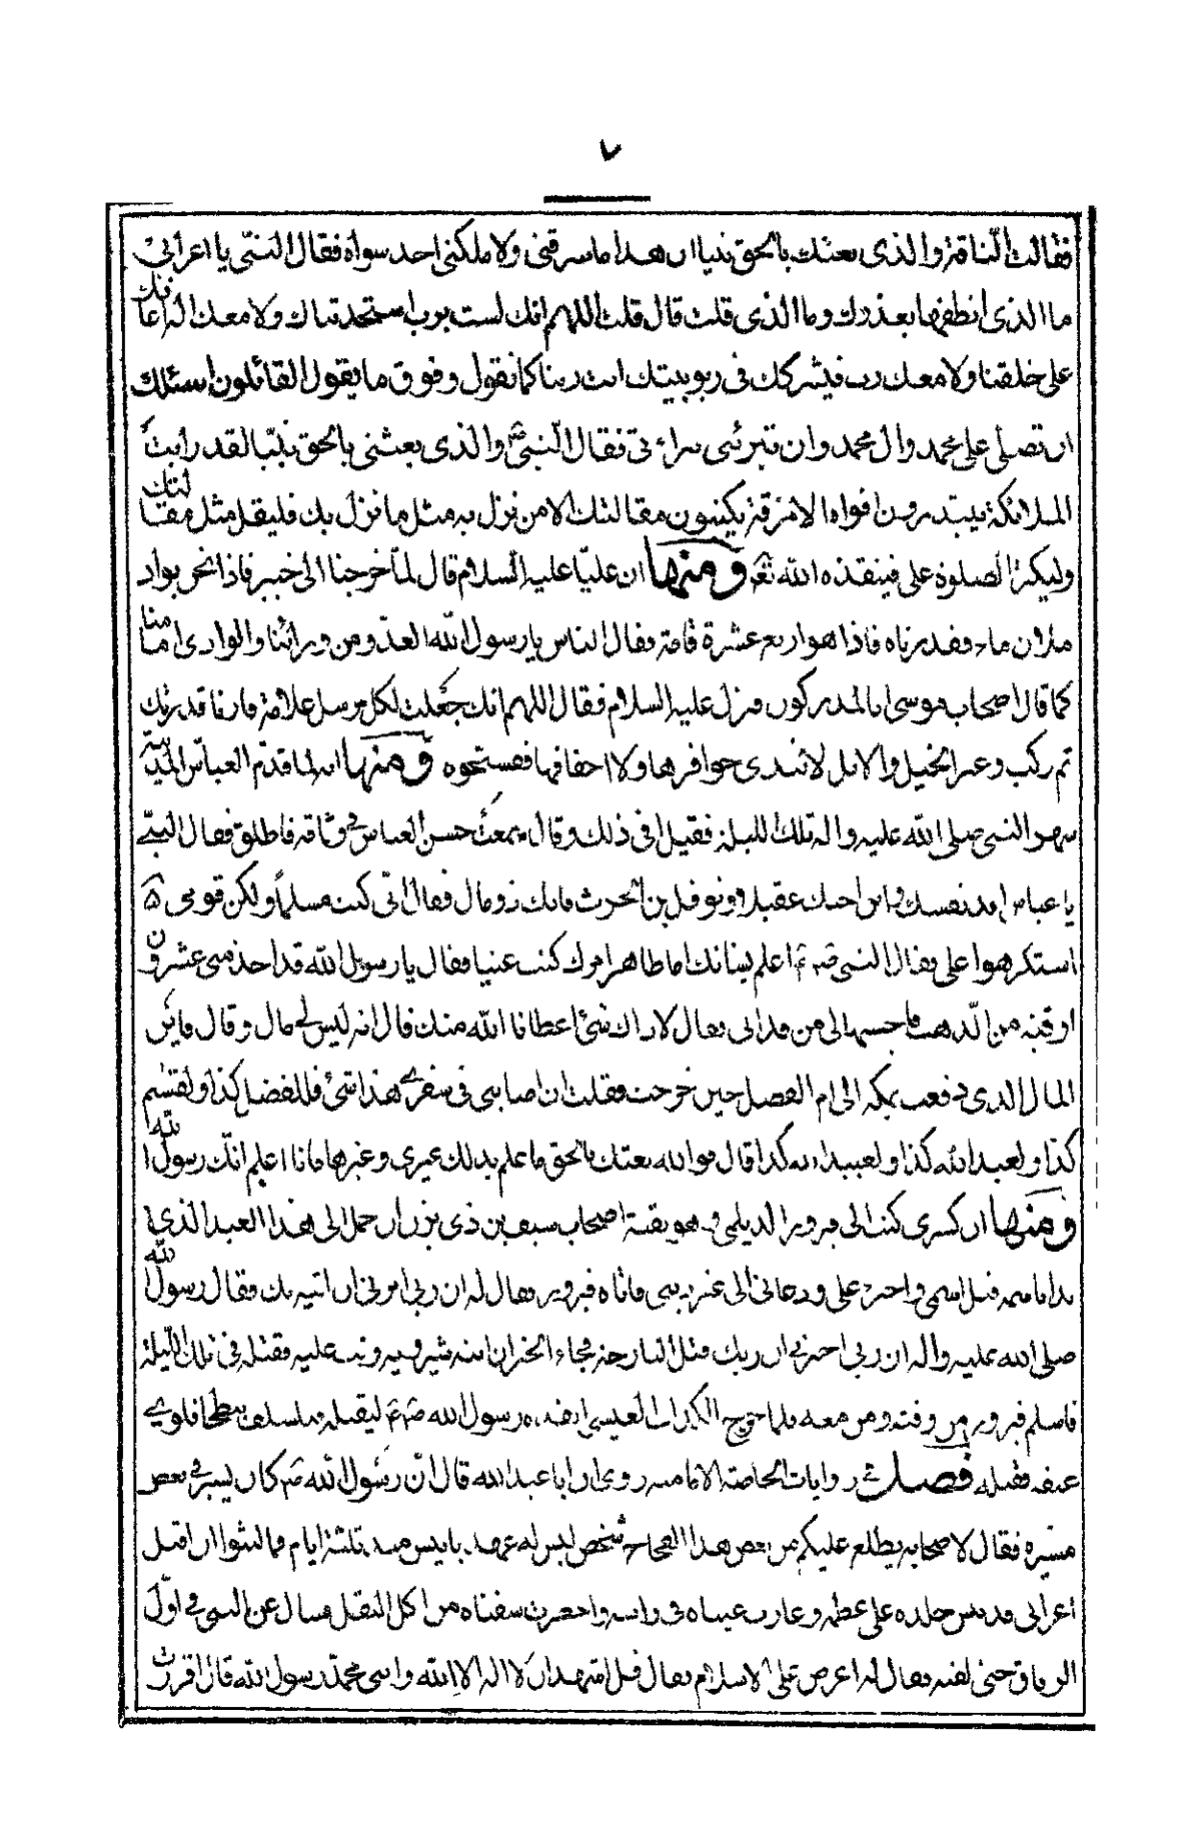 ٧
فقالت النّاقة والذى بعثك بالحق نبيا ان هذا ما سرقنى ولا ملكنى احد سواه فقال النبّى يا اعرابىّ
ما الذى انطقها بعذرك وما الذى قلت قال قلت اللهم انك لست برب استحدثناك ولا معك اله اعانك
على خلقنا ولا معك رب فيشركك فى ربوبيتك انت ربنا كما نقول وفوق ما يقول القائلون اسئلك
ان تصلى على محمد وال محمد وان تبرئنى ببراءتى فقال النّبىّ ص والذى بعثنى بالحق نبيّا لقد رايت
الملائكة يبتدرون افواه الازقة يكتبون مقالتك الا من نزل به مثل ما نزل بك فليقل مثل مقالتك
وليكثر الصلوة على فينقذه الله تعم ومنها ان عليّا عليه السلام قال لمّا خرجنا الى خيبر فاذا نحن بواد
ملان ماء فقدرناه فاذا هو اربع عشرة قامة فقال الناس يا رسول الله العدّو من ورائنا والوادى امامنا
كما قال اصحاب موسى انا لمدركون فنزل عليه السلام فقال اللهم انك جعلت لكل مرسل علامة فارنا قدرتك
ثم ركب وعبر الخيل والابل لا تندى حوافرها ولا اخفافها ففتحوه ومنها انه لما قدّم العبّاس المدينة
سهر النبى صلى الله عليه واله تلك الليلة فقيل فى ذلك وقال سمعت حس العباس فى وثاقه فاطلق فقال النبىّ
يا عباس افد نفسك وابن اخيك عقيل ونوفل بن الحرث فانك ذو مال فقال انّى كنت مسلماً ولكن قومى
استكرهوا على فقال النبى صم اعلم بشانك اما ظاهر امرك كنت علينا فقال يا رسول الله قد اخذ منى عشرون
اوقية من الّذهب فاحسبها لى من فدائى فقال لا ذاك شئ اعطانا الله منك قال انه ليس لى مال وقال فاين
المال الذى دفعت بمكة الى ام الفضل حين خرجت فقلت ان اصابنى فى سفرى هذا شئ فللفضل كذا ولقثم
كذا ولعبد الله كذا ولعبيد الله كذا قال فوالله بعثك بالحق ما علم بذلك غيرى وغيرها فانا اعلم انّك رسول الله
ومنها ان كسرى كتب الى فيروز الديلمى وهو بقية اصحاب سيف بن ذى يزن ان احمل الى هذا العبد الذى
بدا باسمه قبل اسمى واجترء على ودعانى الى غير دينى فاتاه فيروز فقال له ان ربى امرنى ان اتيه بك فقال رسول الله
صلى الله عليه واله ان ربى اخبرنى ان ربك قتل البارحة فجاء الخبر ان ابنه شيرويه وثب عليه فقتله فى تلك اللّيلة
فاسلم فيروز ومن معه فلما خرج الكذاب العبسى انفذه رسول الله صم ليقتله فتسلق سطحا فلوى
عنقه فقتله فصل فى روايات الخاصة الامامية روى ان ابا عبد الله قال انّ رسول الله صم كان يسير فى بعض
مسيره فقال لاصحابه يطلع عليكم من بعض هذا الفجاج شخص ليس له عهد بابليس منذ ثلثة ايام فما لبثوا ان اقبل
اعرابى قد يبس جلده على عظمه وغارت عيناه فى راسه واخضرت شفتاه من اكل البقل فسال عن النبى فى اوّل
الرفاق حتى لقيه فقال له اعرض على الاسلام فقال قل اشهد ان لا اله الا الله وانى محمّد رسول الله قال اقررت